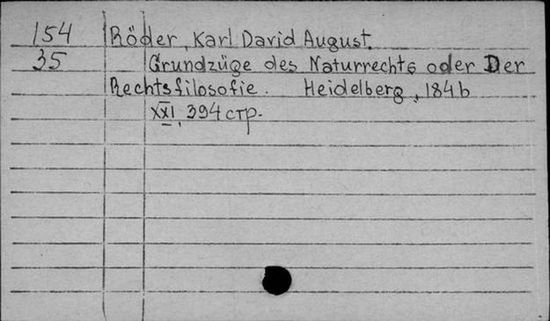 154 Röder, Karl David August.
35 Grundzüge des Naturrechts oder Der
Rechtsfilosofie. Heidelberg, 1846
XXI, 394 стр.